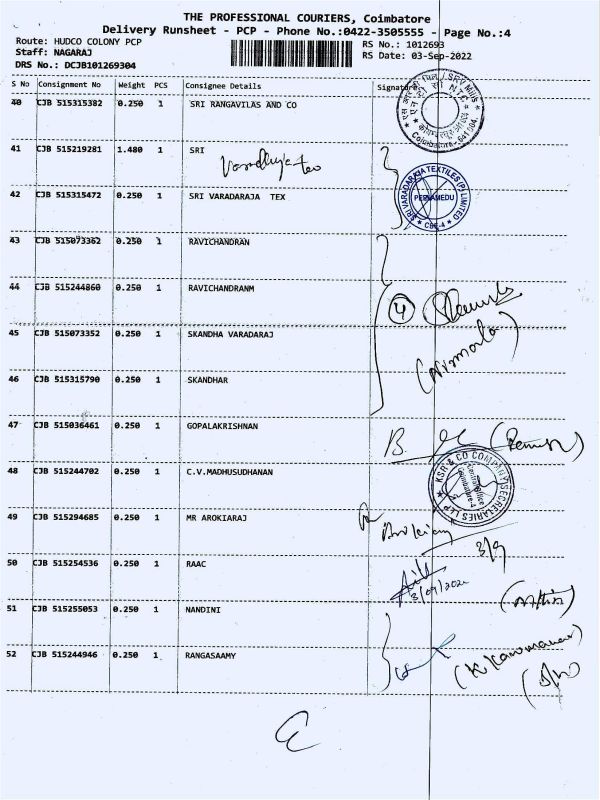 THE PROFESSIONAL COURIERS, Coimbatore
Delivery Runsheet - PCP - Phone No.:0422-3505555 - Page No.:4
Route: HUDCO COLONY PCP
RS No.: 1012693
Staff: NAGARAJ
RS Date: 03-Sep-2022
DRS No.: DCJB101269304
S No Consignment No Weight PCS Consignee Details Signature
40 CJB 515315382 0.250 1 SRI RANGAVILAS AND CO
41 CJB 515219281 1.480 1 SRI
42 CJB 515315472 0.250 1 SRI VARADARAJA TEX
SRI VARADARAJA TEXTILES (P) LIMITED
PEELAMEDU
CBE-4
43 CJB 515073362 0.250 1 RAVICHANDRAN
44 CJB 515244860 0.250 1 RAVICHANDRANM
4
(Nirmala)
45 CJB 515073352 0.250 1 SKANDHA VARADARAJ
46 CJB 515315790 0.250 1 SKANDHAR
47 CJB 515036461 0.250 1 GOPALAKRISHNAN
48 CJB 515244702 0.250 1 C.V.MADHUSUDHANAN
KSR & CO COMPANY SECRETARIES LLP
49 CJB 515294685 0.250 1 MR AROKIARAJ
3/9
50 CJB 515254536 0.250 1 RAAC
3/09/2022
51 CJB 515255053 0.250 1 NANDINI
52 CJB 515244946 0.250 1 RANGASAAMY